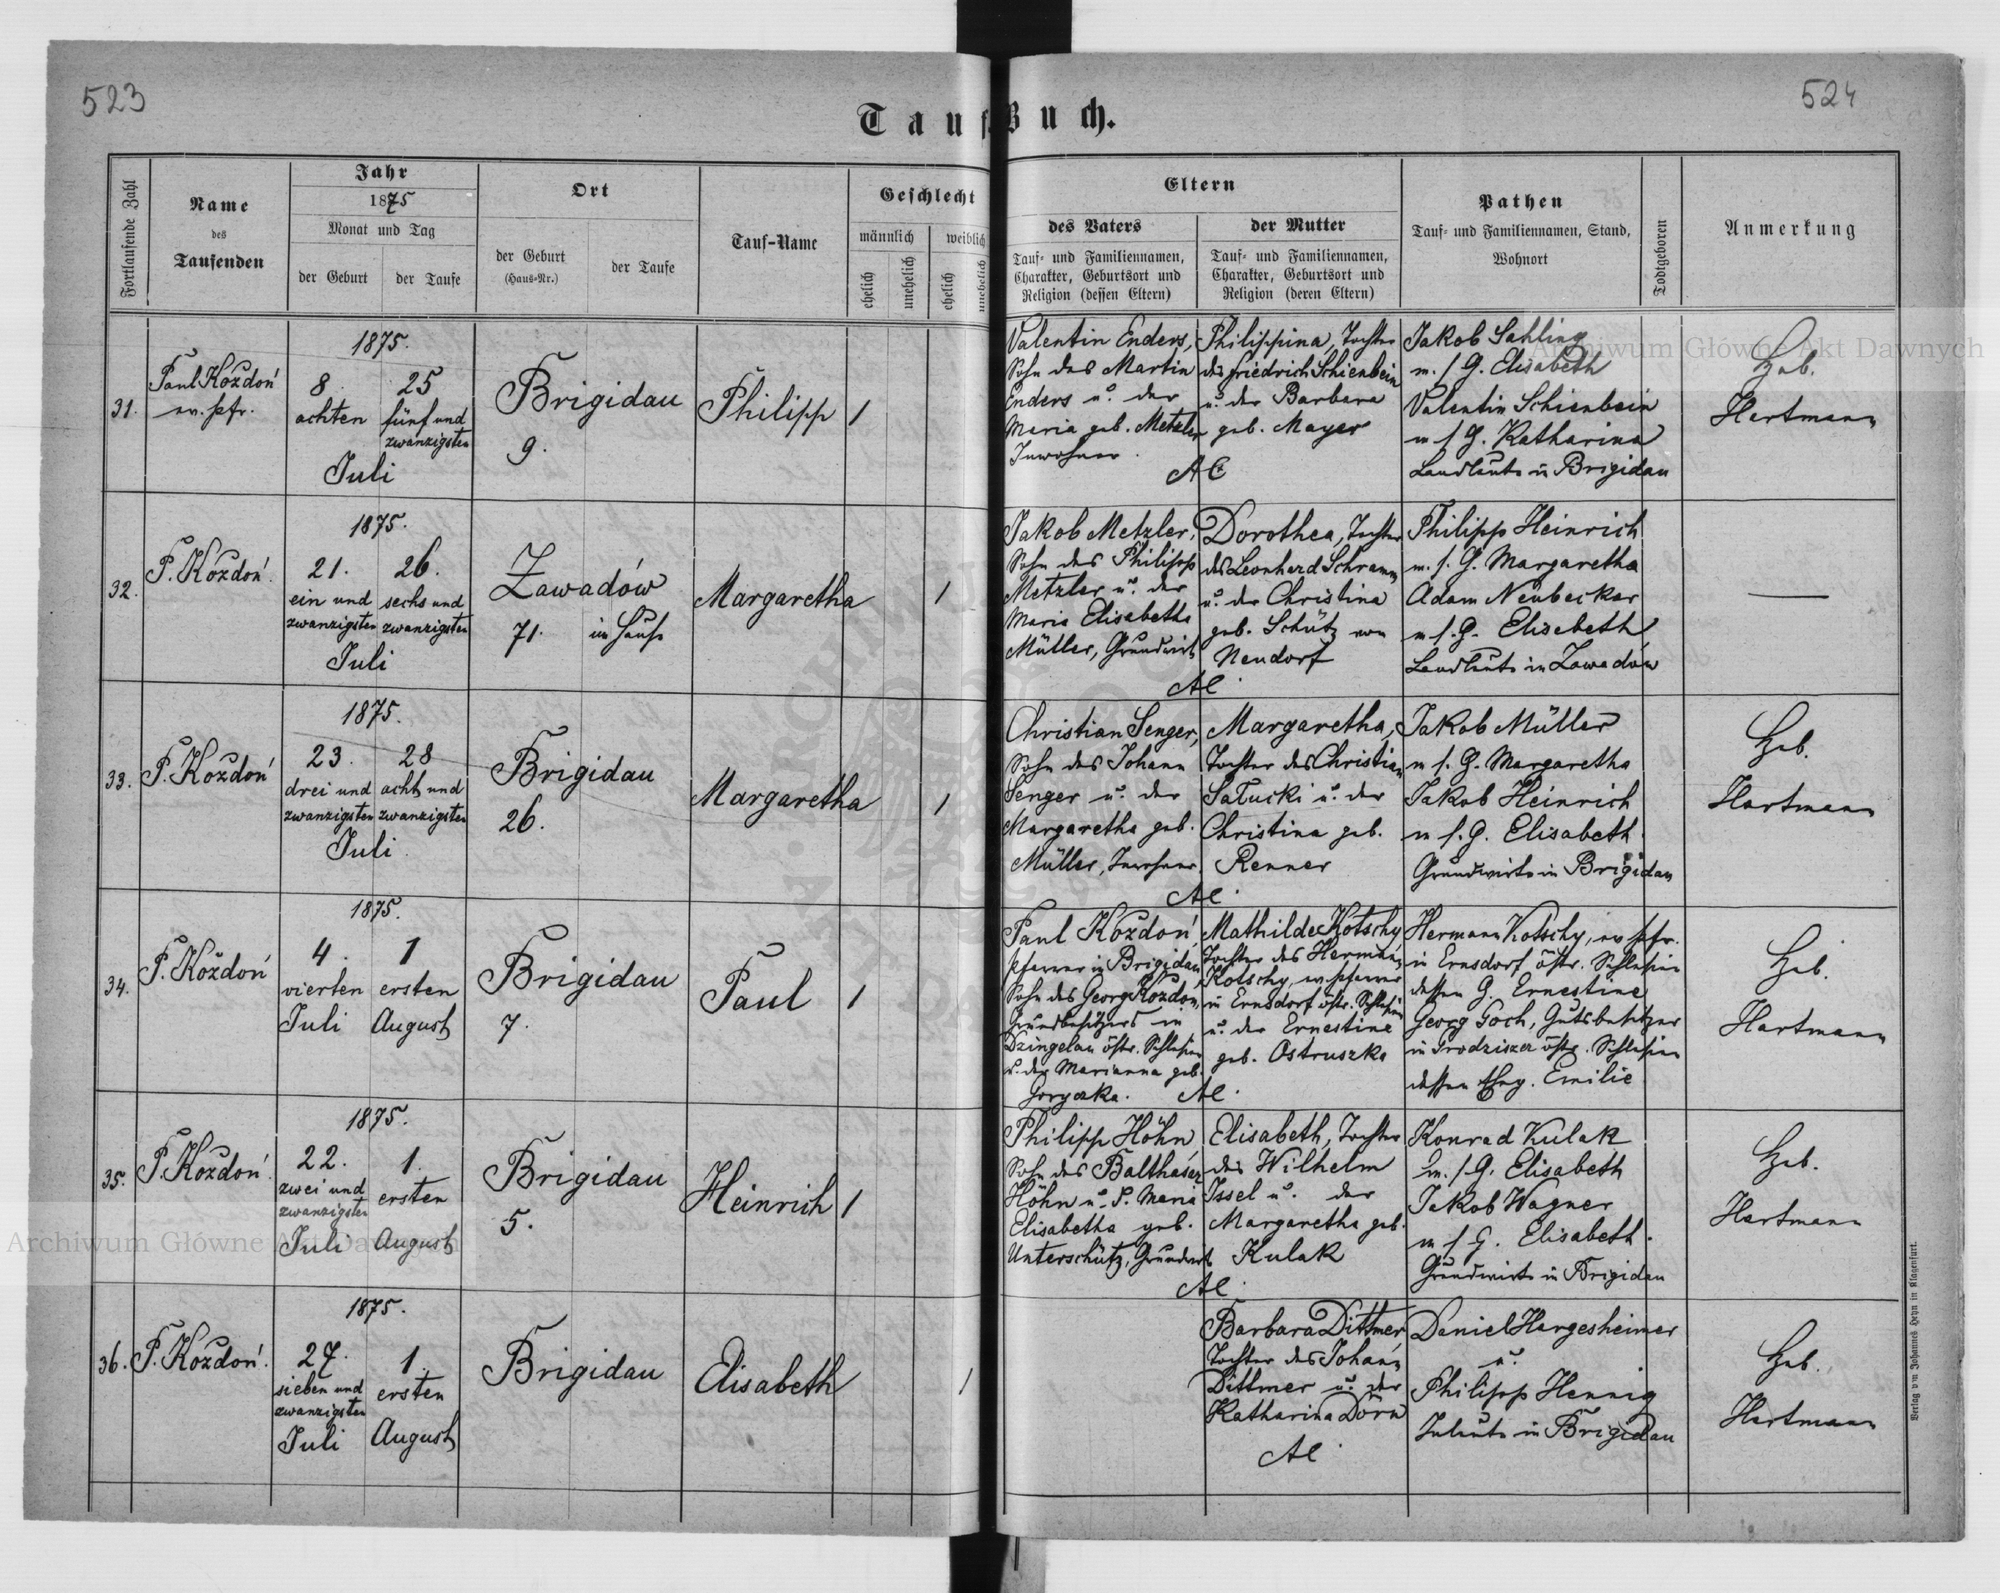 523
524
Tauf-Buch.
Fortlaufende Zahl
Name
des
Taufenden
Jahr
1875
Monat und Tag
der Geburt
der Taufe
Ort
der Geburt
(Haus-Nr.)
der Taufe
Tauf-Name
Geschlecht
männlich
weiblich
ehelich
unehelich
ehelich
unehelich
Eltern
des Vaters
Tauf- und Familiennamen,
Charakter, Geburtsort und
Religion (dessen Eltern)
der Mutter
Tauf- und Familiennamen,
Charakter, Geburtsort und
Religion (deren Eltern)
Pathen
Tauf- und Familiennamen, Stand,
Wohnort
Todtgeboren
Anmerkung
31.
Paul Kozdoń
ev. pfr.
1875.
8.
achten
25
fünf und
zwanzigsten
Juli
Brigidau
9.
Philipp
1
Valentin Enders,
Sohn des Martin
Enders u. der
Maria geb. Metzler
Inwohner.
Philippina, Tochter
des Friedrich Schienbein
u. der Barbara
geb. Mayer
AC
Jakob Sahling
m. s. G. Elisabeth
Valentin Schienbein
m s G. Katharina
Landleute in Brigidau
Heb.
Hartmann
32.
P. Kozdoń.
1875.
21.
ein und
zwanzigsten
26.
sechs und
zwanzigsten
Juli
Zawadów
71. im Hause
Margaretha
1
Jakob Metzler,
Sohn des Philipp
Metzler u. der
Maria Elisabetha
Müller, Grundwirt
Dorothea, Tochter
des Leonhard Schramm
u. der Christina
geb. Schütz von
Neudorf
AC.
Philipp Heinrich
m. s. G. Margaretha
Adam Neubecker
m s. G. Elisabeth
Landleute in Zawadów
33.
P. Kozdoń
1875.
23.
drei und
zwanzigsten
28
acht und
zwanzigsten
Juli.
Brigidau
26.
Margaretha
1
Christian Senger,
Sohn des Johann
Senger u. der
Margaretha geb.
Müller, Inwohner
Margaretha,
Tochter des Christian
Salucki u. der
Christina geb.
Renner
AC.
Jakob Müller
m s. G. Margaretha
Jakob Heinrich
m s. G. Elisabeth.
Grundwirte in Brigidau
Heb.
Hartmann
34.
P. Kozdoń
1875.
4.
vierten
Juli
1
ersten
August
Brigidau
7.
Paul
1
Paul Kozdoń,
Pfarrer in Brigidau,
Sohn des Georg Kozdon,
Grundbesitzers in
Dzingelau östr. Schlesien
u. der Marianna geb.
Goryczka.
Mathilde Kotschy
Tochter des Hermann
Kotschy, ev. pfarrer
in Ernsdorf östr. Schlesien
u. der Ernestine
geb. Ostruszka
AC.
Hermann Kotschy, ev pfr.
in Ernsdorf östr. Schlesien
dessen G. Ernestine
Georg Goch, Gutsbesitzer
in Grodziszcz östr. Schlesien
dessen Emilie
Heb.
Hartmann
35.
P. Kozdoń.
1875.
22.
zwei und
zwanzigsten
Juli
1.
ersten
August
Brigidau
5.
Heinrich
1
Philipp Höhn
Sohn des Balthasar
Höhn u. d. Maria
Elisabetha geb.
Unterschütz, Grundwirt
Elisabeth, Tochter
des Wilhelm
Issel u. der
Margaretha geb.
Kulak
AC.
Konrad Kulak
m. s. G. Elisabeth
Jakob Wagner
m s G. Elisabeth.
Grundwirte in Brigidau
Heb.
Hartmann
36.
P. Kozdoń.
1875.
27.
sieben und
zwanzigsten
Juli
1.
ersten
August
Brigidau
Elisabeth
1
Barbara Dittmer
Tochter des Johann
Dittmer u. der
Katharina Dörn
AC.
Daniel Hargesheimer
u.
Philipp Hennig
in Brigidau
Heb.
Hartmann
Verlag v m Johannes Heyn in Klagenfurt.
Archiwum Główne Akt Dawnych
Archiwum Główne Akt Dawnych